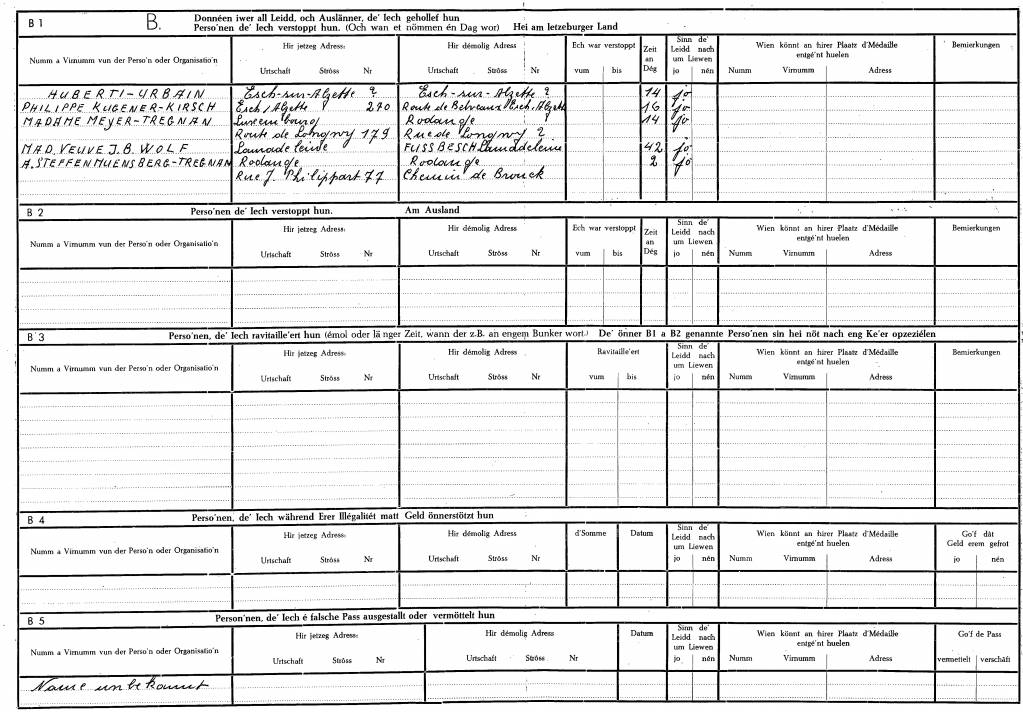 B 1 B. Donnéen iwer all Leidd, och Auslänner, de' Iech gehollef hun
Perso'nen de' Iech verstoppt hun. (Och wan et nömmen én Dag wor) Hei am letzeburger Land
Numm a Virnumm vun der Perso'n oder Organisatio'n
Hir jetzeg Adress:
Urtschaft Ströss Nr
Hir démolig Adress
Urtschaft Ströss Nr
Ech war verstoppt
vum bis
Zeit an Dég
Sinn de' Leidd nach um Liewen
jo nén
Wien könnt an hirer Plaatz d'Médaille entgé'nt huelen
Numm Virnumm Adress
Bemierkungen
HUBERTI-URBAIN Esch-sur-Alzette ? Esch-sur-Alzette ? 14 jo
PHILIPPE KUGENER-KIRSCH Esch/Alzette 270 Route de Belvaux Esch/Alzette 16 jo
MADAME MEYER-TREGNAN Luxembourg Rodange 14 jo
Route de Longwy 179 Rue de Longwy 2
MAD. VEUVE J.B. WOLF Lamadeleine FUSSBESCH Lamadeleine 42 jo
A. STEFFEN MUENSBERG-TREGNAN Rodange Rodange 2 jo
Rue J. Philippart 77 Chemin de Brouck
B 2 Perso'nen de' Iech verstoppt hun. Am Ausland
Numm a Virnumm vun der Perso'n oder Organisatio'n
Hir jetzeg Adress:
Urtschaft Ströss Nr
Hir démolig Adress
Urtschaft Ströss Nr
Ech war verstoppt
vum bis
Zeit an Dég
Sinn de' Leidd nach um Liewen
jo nén
Wien könnt an hirer Plaatz d'Médaille entgé'nt huelen
Numm Virnumm Adress
Bemierkungen
B 3 Perso'nen, de' Iech ravitaille'ert hun (émol oder länger Zeit, wann der z.B. an engem Bunker wort.) De' önner B1 a B2 genannte Perso'nen sin hei nöt nach eng Ke'er opzeziélen
Numm a Virnumm vun der Perso'n oder Organisatio'n
Hir jetzeg Adress:
Urtschaft Ströss Nr
Hir démolig Adress
Urtschaft Ströss Nr
Ravitaille'ert
vum bis
Sinn de' Leidd nach um Liewen
jo nén
Wien könnt an hirer Plaatz d'Médaille entgé'nt huelen
Numm Virnumm Adress
Bemierkungen
B 4 Perso'nen, de' Iech während Erer Illégalitét matt Geld önnerstötzt hun
Numm a Virnumm vun der Perso'n oder Organisatio'n
Hir jetzeg Adress:
Urtschaft Ströss Nr
Hir démolig Adress
Urtschaft Ströss Nr
d'Somme
Datum
Sinn de' Leidd nach um Liewen
jo nén
Wien könnt an hirer Plaatz d'Médaille entgé'nt huelen
Numm Virnumm Adress
Go'f dât Geld erem gefrot
jo nén
B 5 Person'nen, de' Iech é falsche Pass ausgestallt oder vermöttelt hun
Numm a Virnumm vun der Perso'n oder Organisatio'n
Hir jetzeg Adress:
Urtschaft Ströss Nr
Hir démolig Adress
Urtschaft Ströss Nr
Datum
Sinn de' Leidd nach um Liewen
jo nén
Wien könnt an hirer Plaatz d'Médaille entgé'nt huelen
Numm Virnumm Adress
Go'f de Pass
vermettelt verschâft
Name unbekannt